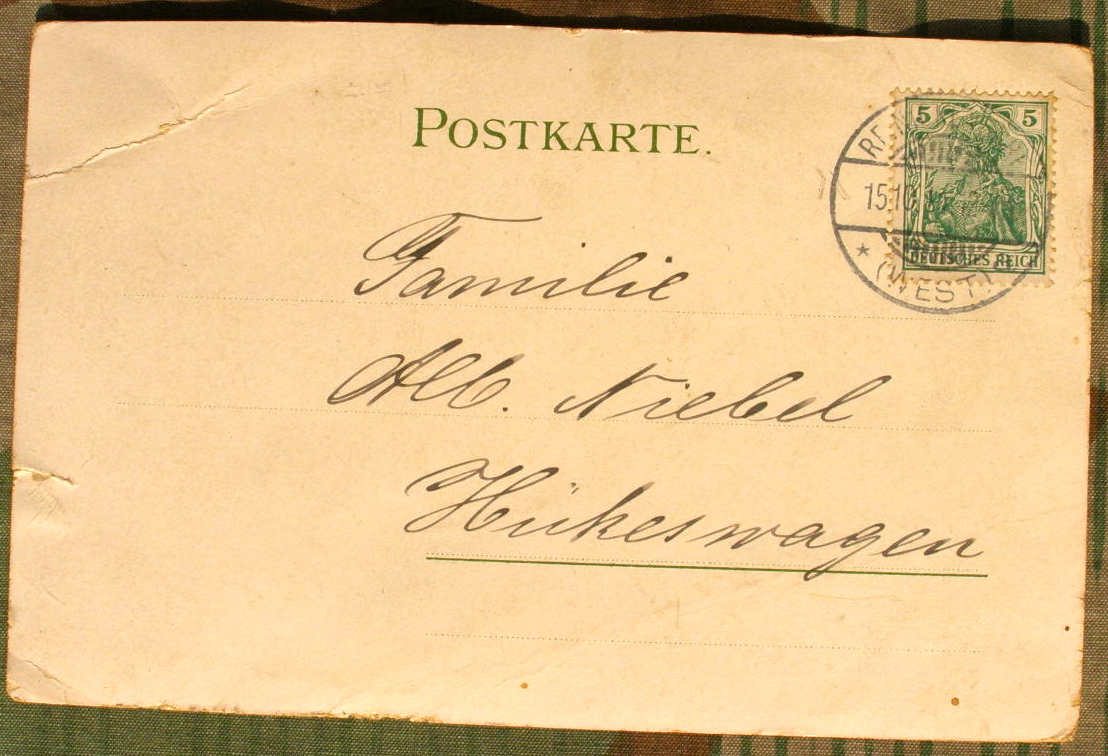 POSTKARTE.
5 5
DEUTSCHES REICH
(WEST)
Familie
Alb. Niebel
Hückeswagen